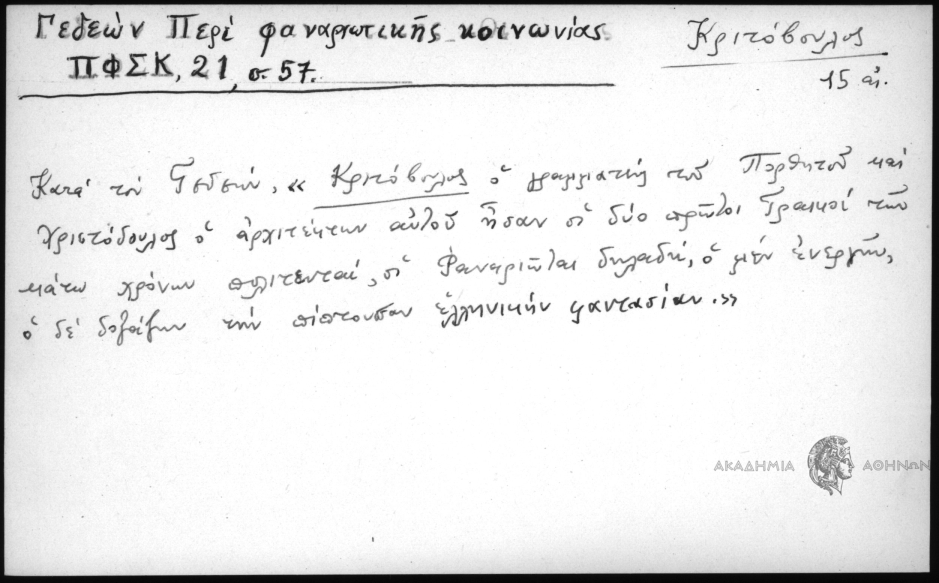 Γεδεών Περί φαναριωτικῆς κοινωνίας
ΠΦΣΚ, 21, σ. 57.
Κριτόβουλος
15 αἰ.
Κατά τόν Γεδεών, « Κριτόβουλος ὁ γραμματεύς τοῦ Πορθητοῦ καί
Χριστόδουλος ὁ ἀρχιτέκτων αὐτοῦ ἦσαν οἱ δύο πρῶτοι Γραικοί τῶν
κάτω χρόνων πολιτευταί, οἱ Φαναριῶται δηλαδή, ὁ μέν ἐνεργῶν,
ὁ δέ δοξάζων τήν πίπτουσαν ἑλληνικήν φαντασίαν.»
ΑΚΑΔΗΜΙΑ ΑΘΗΝΩΝ